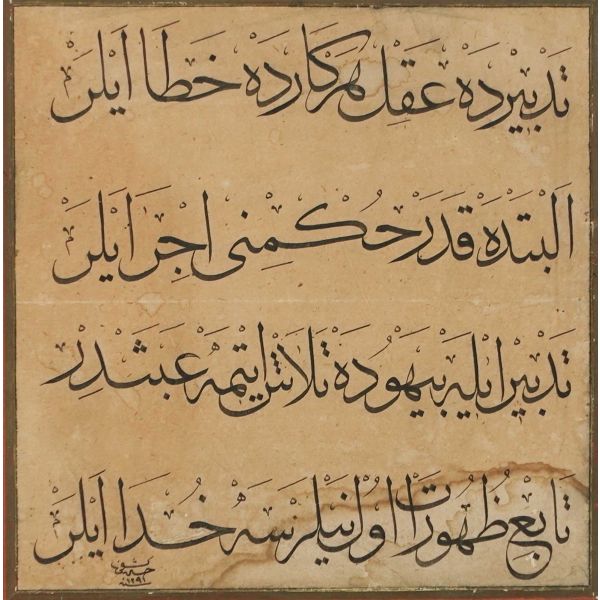 تَدْبِيْردَه عَقِلْ هَرْكَاردَهْ خَطَا اَيْلَرْ
اَلْبَتْدَهْ قَدَرْ حُكْمِنِى اِجْرَا اَيْلَرْ
تَدْبِيْر اِيْلَه بِيْهُودَهْ تَلَاشْ اِيتْمَهْ عَبَثْدِرْ
تَابِعْ ظُهُورَاتْ اولْ نَيْلَرْسَهْ خُدَا اَيْلَرْ